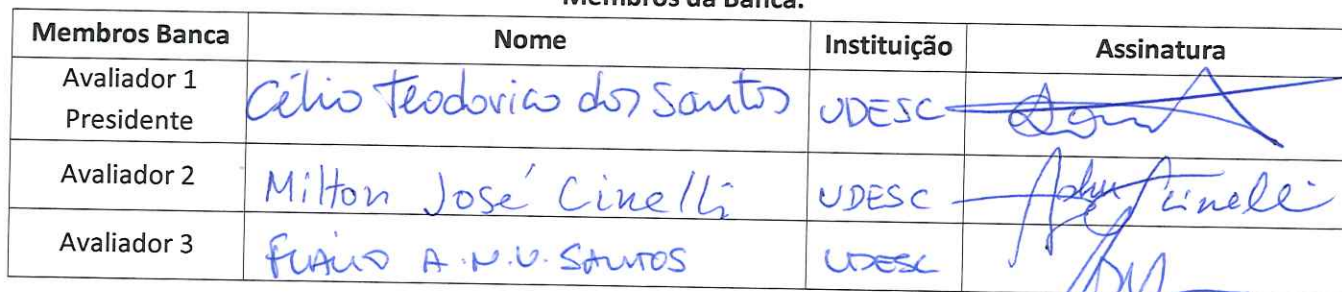 Membros da Banca.
Membros Banca Nome Instituição Assinatura
Avaliador 1
Presidente
Célio Teodorico dos Santos UDESC
Avaliador 2 Milton José Cinelli UDESC Cinelli
Avaliador 3 FLÁVIO A.N.V. SANTOS UDESC